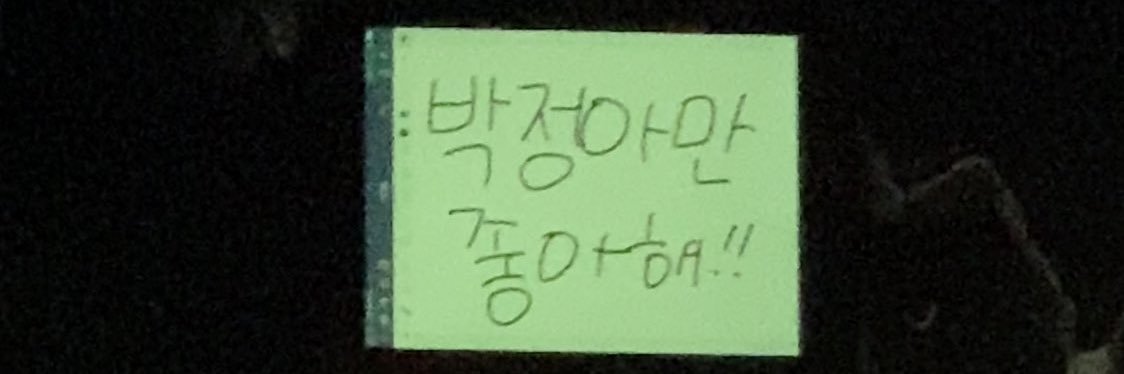 박정아만
좋아해!!